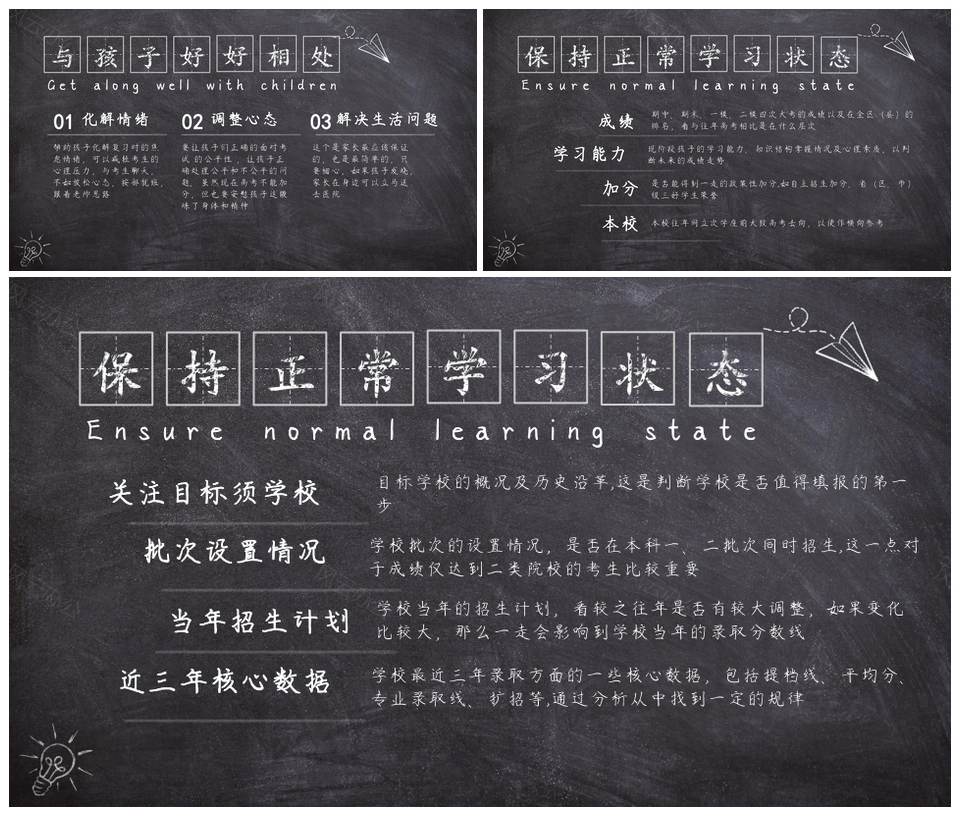 与孩子好好相处
Get along well with children
01 化解情绪
帮助孩子化解复习时的焦
虑情绪，可以减轻考生的
心理压力，与考生聊天，
不如放松心态，按部就班，
跟着老师思路
02 调整心态
要让孩子们正确的面对考
试的公平性，让孩子正
确处理公平和不公平的问
题，虽然现在高考不能加
分，但也要安慰孩子这锻
练了身体和精神
03 解决生活问题
这个是家长最应该保证
的，也是最简单的，只
要细心，如果孩子发烧，
家长在身边可以立马送
去医院
保持正常学习状态
Ensure normal learning state
成绩
期中、期末、一模、二模四次大考的成绩以及在全区（县）的
排名，看与往年高考相比是在什么层次
学习能力
现阶段孩子的学习能力，知识结构掌握情况及心理素质，以判
断未来的成绩走势
加分
是否能得到一定的政策性加分,如自主招生加分、省（区、市）
级三好学生荣誉
本校
本校往年同立次学生前大致高考去向，以便作横向参考
保持正常学习状态
Ensure normal learning state
关注目标须学校
目标学校的概况及历史沿革,这是判断学校是否值得填报的第一
步
批次设置情况
学校批次的设置情况，是否在本科一、二批次同时招生,这一点对
于成绩仅达到二类院校的考生比较重要
当年招生计划
学校当年的招生计划，看较之往年是否有较大调整，如果变化
比较大，那么一定会影响到学校当年的录取分数线
近三年核心数据
学校最近三年录取方面的一些核心数据，包括提档线、平均分、
专业录取线、扩招等,通过分析从中找到一定的规律